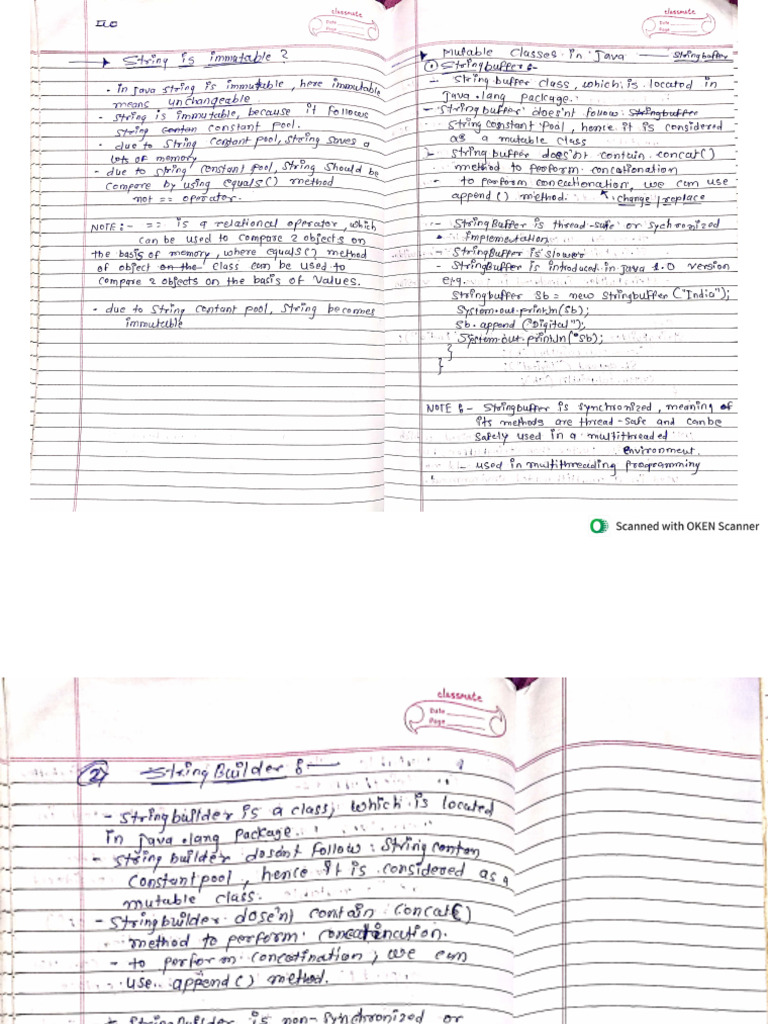 ILC
classmate
Date
Page
→ String is immutable?
- in java string is immutable, here immutable
means unchangeable.
- string is immutable, because it follows
string contan constant pool.
- due to String constant pool, string saves a
lots of memory
- due to string constant pool, String should be
compare by using equals() method
not == operator.
NOTE :- == is a relational operator, which
can be used to compare 2 objects on
the basis of memory, where equals() method
of object on the class can be used to
compare 2 objects on the basis of values.
- due to String contant pool, String becomes
immutable
classmate
Date
Page
→ Mutable Classes in Java
Stringbuffer
① Stringbuffer :-
- String buffer class, which is located in
Java.lang package.
- Stringbuffer doesn't follow Stringbuffer
String constant Pool, hence it is considered
as a mutable class
- String buffer does'nt contain concat()
method to perform concationation
- to perform concationation, we can use
append() method.
change / replace
- StringBuffer is thread-safe or sychronized
implementation
- StringBuffer is slower
- StringBuffer is introduced in java 1.0 version
e.g.
Stringbuffer Sb = new Stringbuffer ("India");
System.out.println(Sb);
Sb.append ("Digital");
System.out.println(Sb);
}
}
NOTE :- Stringbuffer is synchronized, meaning of
its methods are thread-safe and canbe
safely used in a multithreaded
environment.
- used in multithreading programming
Scanned with OKEN Scanner
classmate
Date
Page
② StringBuilder :-
- stringbuilder is a class, which is located
in java.lang package.
- string builder dosent follow: String contan
constantpool, hence it is considered as a
mutable class.
- Stringbuilder dose'nt contain concat()
method to perform concatination.
- to perform concotination, we can
use append() method.
StringBuilder is non-synchronized or